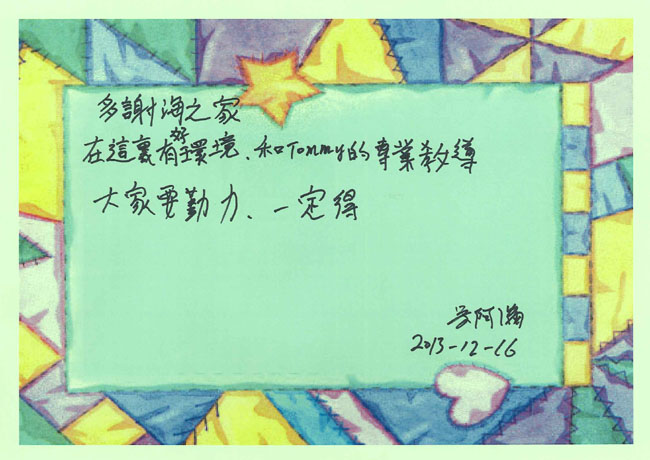 多謝海之家
在這裏有好環境、和Tommy的專業教導
大家要勤力、一定得
吳阿瀚
2013-12-16